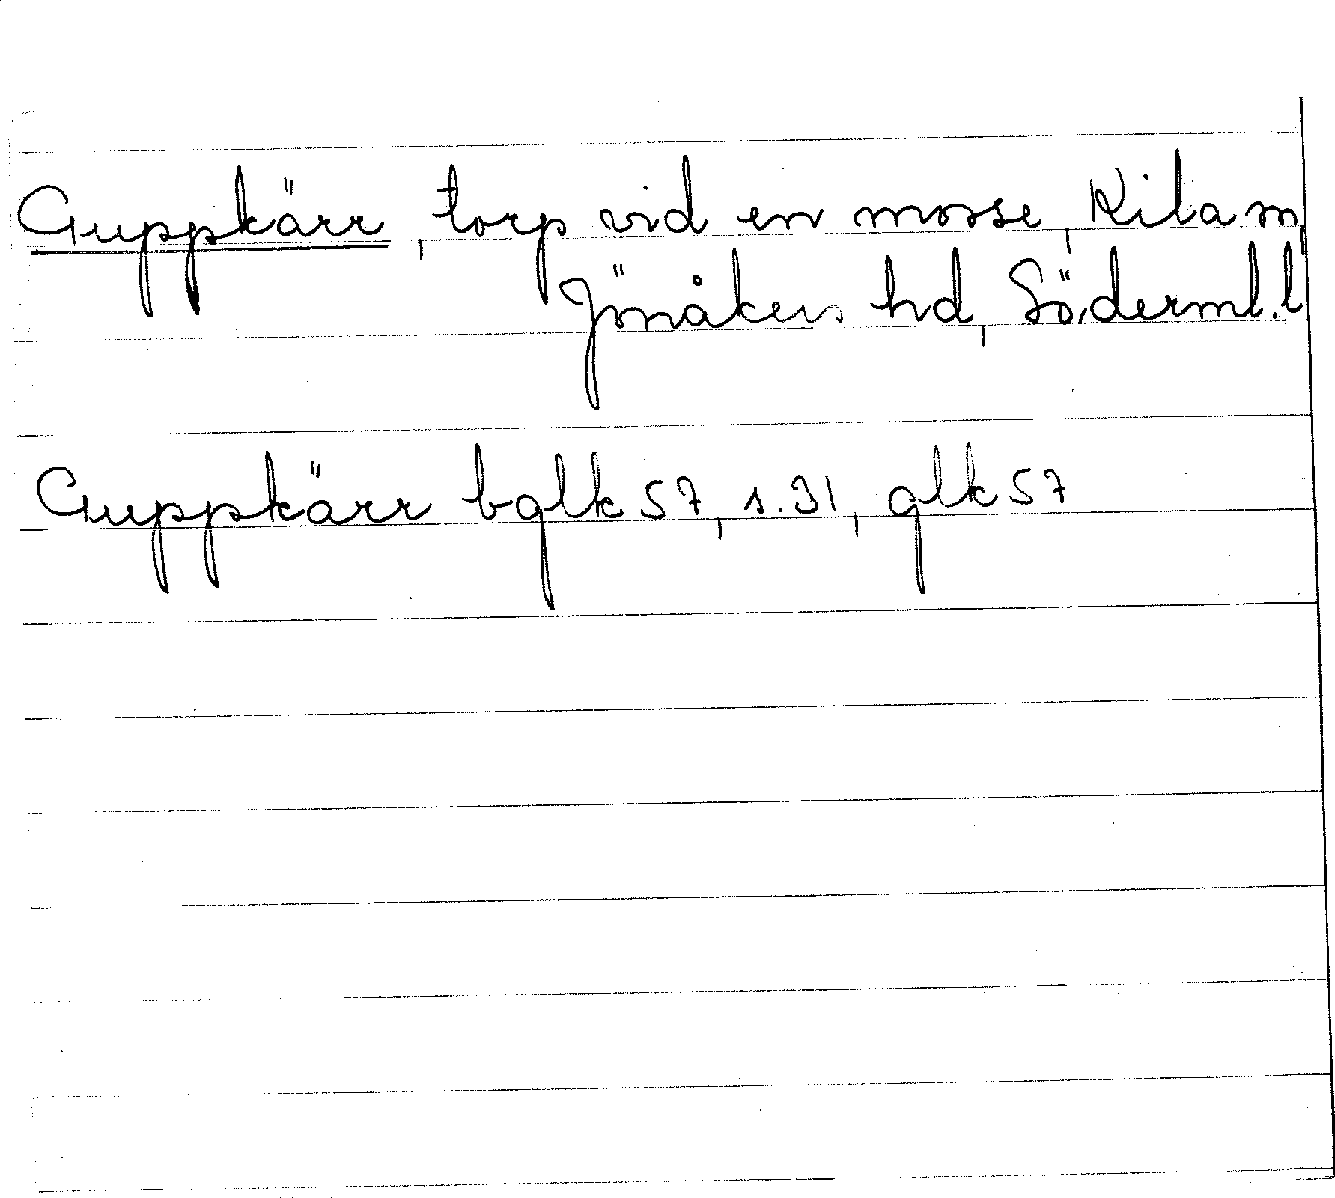 Guppkärr, torp vid en mosse, Kila sn,
Jönåkers hd, Söderml. l
Guppkärr bglk 57, s. 31, glk 57